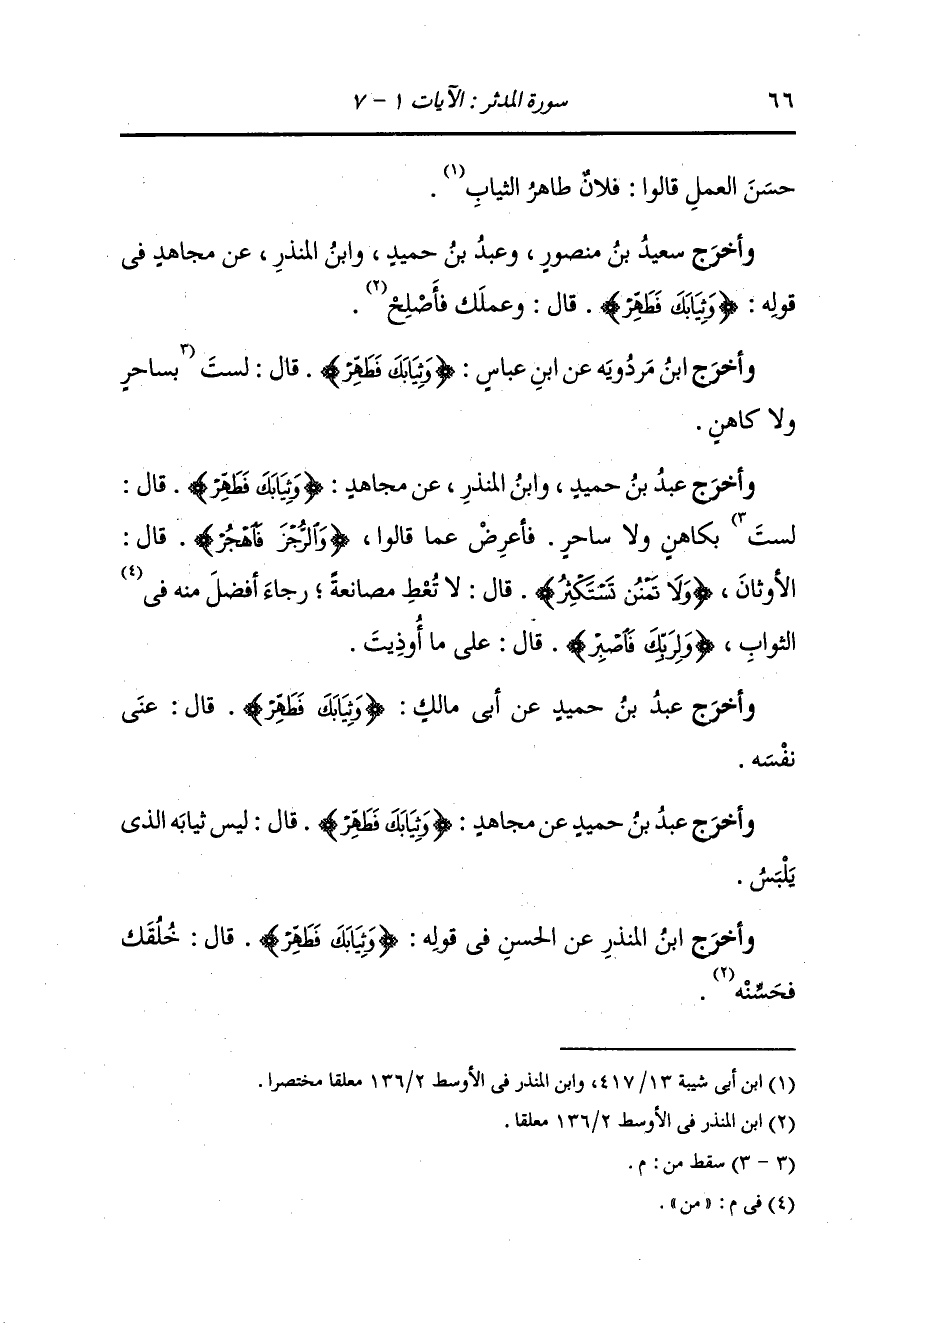 ٦٦ سورة المدثر : الآيات ١ - ٧
حسَنَ العملِ قالوا : فلانٌ طاهرُ الثيابِ(١) .
وأخرَج سعيدُ بنُ منصورٍ ، وعبدُ بنُ حميدٍ ، وابنُ المنذرِ ، عن مجاهدٍ فى
قولِه : ﴿وَثِيَابَكَ فَطَهِّرْ﴾ . قال : وعملَك فأَصْلِحْ(٢) .
وأخرَج ابنُ مَردُويَه عن ابنِ عباسٍ : ﴿وَثِيَابَكَ فَطَهِّرْ﴾ . قال : لستَ (٣بساحرٍ
ولا كاهنٍ .
وأخرَج عبدُ بنُ حميدٍ ، وابنُ المنذرِ ، عن مجاهدٍ : ﴿وَثِيَابَكَ فَطَهِّرْ﴾ . قال :
لستَ٣) بكاهنٍ ولا ساحرٍ . فأعرِضْ عما قالوا ، ﴿وَٱلرُّجْزَ فَٱهْجُرْ﴾ . قال :
الأوثانَ ، ﴿وَلَا تَمْنُن تَسْتَكْثِرُ﴾ . قال : لا تُعْطِ مصانعةً ؛ رجاءَ أفضلَ منه فى(٤)
الثوابِ ، ﴿وَلِرَبِّكَ فَٱصْبِرْ﴾ . قال : على ما أُوذِيتَ .
وأخرَج عبدُ بنُ حميدٍ عن أبى مالكٍ : ﴿وَثِيَابَكَ فَطَهِّرْ﴾ . قال : عنَى
نفْسَه .
وأخرَج عبدُ بنُ حميدٍ عن مجاهدٍ : ﴿وَثِيَابَكَ فَطَهِّرْ﴾ . قال : ليس ثيابَه الذى
يَلْبَسُ .
وأخرَج ابنُ المنذرِ عن الحسنِ فى قولِه : ﴿وَثِيَابَكَ فَطَهِّرْ﴾ . قال : خُلُقَك
فحَسِّنْه(٢) .
(١) ابن أبى شيبة ٤١٧/١٣، وابن المنذر فى الأوسط ١٣٦/٢ معلقا مختصرا .
(٢) ابن المنذر فى الأوسط ١٣٦/٢ معلقا .
(٣ - ٣) سقط من : م .
(٤) فى م : «من» .